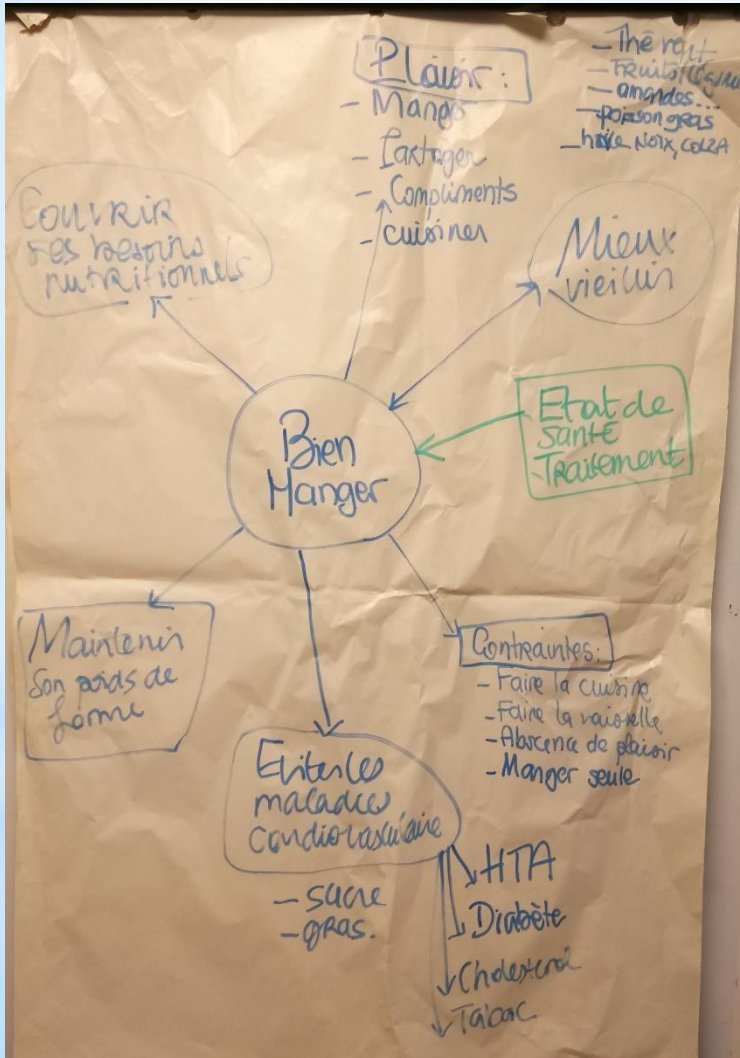 Plaisir :
- Manger
- Partager
- Compliments
- cuisiner
- Thé vert
- Fruits
- amandes...
- poisson gras
- huile NOIX, COLZA
COUVRIR
ses besoins
nutritionnels
Mieux
vieillir
Bien
Manger
Etat de
santé
Traitement
Maintenir
son poids de
forme
Contraintes:
- Faire la cuisine
- Faire la vaisselle
- Abscence de plaisir
- Manger seule
Eviter les
maladies
cardiovasculaire
- sucre
- gras.
HTA
Diabète
Cholesterol
Tabac